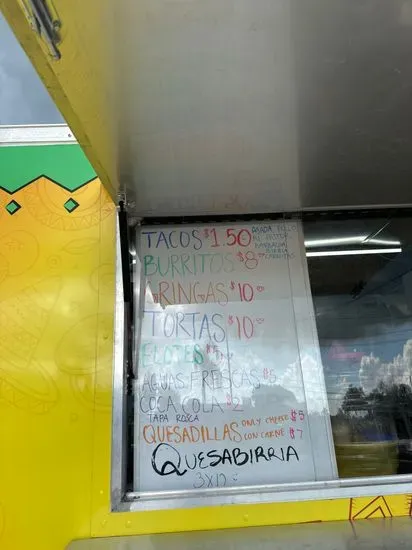 TACOS $1.50
ASADA POLLO
AL PASTOR
BARBACOA
BIRRIA
CARNITAS
BURRITOS $8
GRINGAS $10
TORTAS $10
ELOTES $5
AGUAS FRESCAS $5
COCA COLA $2
TAPA ROSCA
QUESADILLAS ONLY CHEESE $5
CON CARNE $7
QUESABIRRIA
3X10